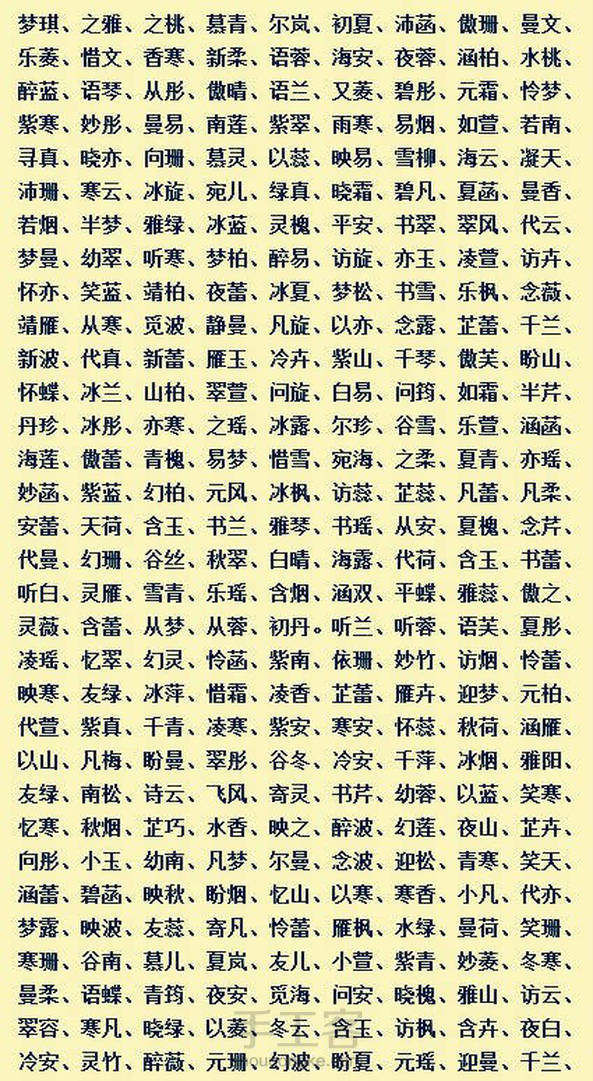 梦琪、之雅、之桃、慕青、尔岚、初夏、沛菡、傲珊、曼文、
乐菱、惜文、香寒、新柔、语蓉、海安、夜蓉、涵柏、水桃、
醉蓝、语琴、从彤、傲晴、语兰、又菱、碧彤、元霜、怜梦、
紫寒、妙彤、曼易、南莲、紫翠、雨寒、易烟、如萱、若南、
寻真、晓亦、向珊、慕灵、以蕊、映易、雪柳、海云、凝天、
沛珊、寒云、冰旋、宛儿、绿真、晓霜、碧凡、夏菡、曼香、
若烟、半梦、雅绿、冰蓝、灵槐、平安、书翠、翠风、代云、
梦曼、幼翠、听寒、梦柏、醉易、访旋、亦玉、凌萱、访卉、
怀亦、笑蓝、靖柏、夜蕾、冰夏、梦松、书雪、乐枫、念薇、
靖雁、从寒、觅波、静曼、凡旋、以亦、念露、芷蕾、千兰、
新波、代真、新蕾、雁玉、冷卉、紫山、千琴、傲芙、盼山、
怀蝶、冰兰、山柏、翠萱、问旋、白易、问筠、如霜、半芹、
丹珍、冰彤、亦寒、之瑶、冰露、尔珍、谷雪、乐萱、涵菡、
海莲、傲蕾、青槐、易梦、惜雪、宛海、之柔、夏青、亦瑶、
妙菡、紫蓝、幻柏、元风、冰枫、访蕊、芷蕊、凡蕾、凡柔、
安蕾、天荷、含玉、书兰、雅琴、书瑶、从安、夏槐、念芹、
代曼、幻珊、谷丝、秋翠、白晴、海露、代荷、含玉、书蕾、
听白、灵雁、雪青、乐瑶、含烟、涵双、平蝶、雅蕊、傲之、
灵薇、含蕾、从梦、从蓉、初丹。听兰、听蓉、语芙、夏彤、
凌瑶、忆翠、幻灵、怜菡、紫南、依珊、妙竹、访烟、怜蕾、
映寒、友绿、冰萍、惜霜、凌香、芷蕾、雁卉、迎梦、元柏、
代萱、紫真、千青、凌寒、紫安、寒安、怀蕊、秋荷、涵雁、
以山、凡梅、盼曼、翠彤、谷冬、冷安、千萍、冰烟、雅阳、
友绿、南松、诗云、飞风、寄灵、书芹、幼蓉、以蓝、笑寒、
忆寒、秋烟、芷巧、水香、映之、醉波、幻莲、夜山、芷卉、
向彤、小玉、幼南、凡梦、尔曼、念波、迎松、青寒、笑天、
涵蕾、碧菡、映秋、盼烟、忆山、以寒、寒香、小凡、代亦、
梦露、映波、友蕊、寄凡、怜蕾、雁枫、水绿、曼荷、笑珊、
寒珊、谷南、慕儿、夏岚、友儿、小萱、紫青、妙菱、冬寒、
曼柔、语蝶、青筠、夜安、觅海、问安、晓槐、雅山、访云、
翠容、寒凡、晓绿、以菱、冬云、含玉、访枫、含卉、夜白、
冷安、灵竹、醉薇、元珊、幻波、盼夏、元瑶、迎曼、千兰、
手工客